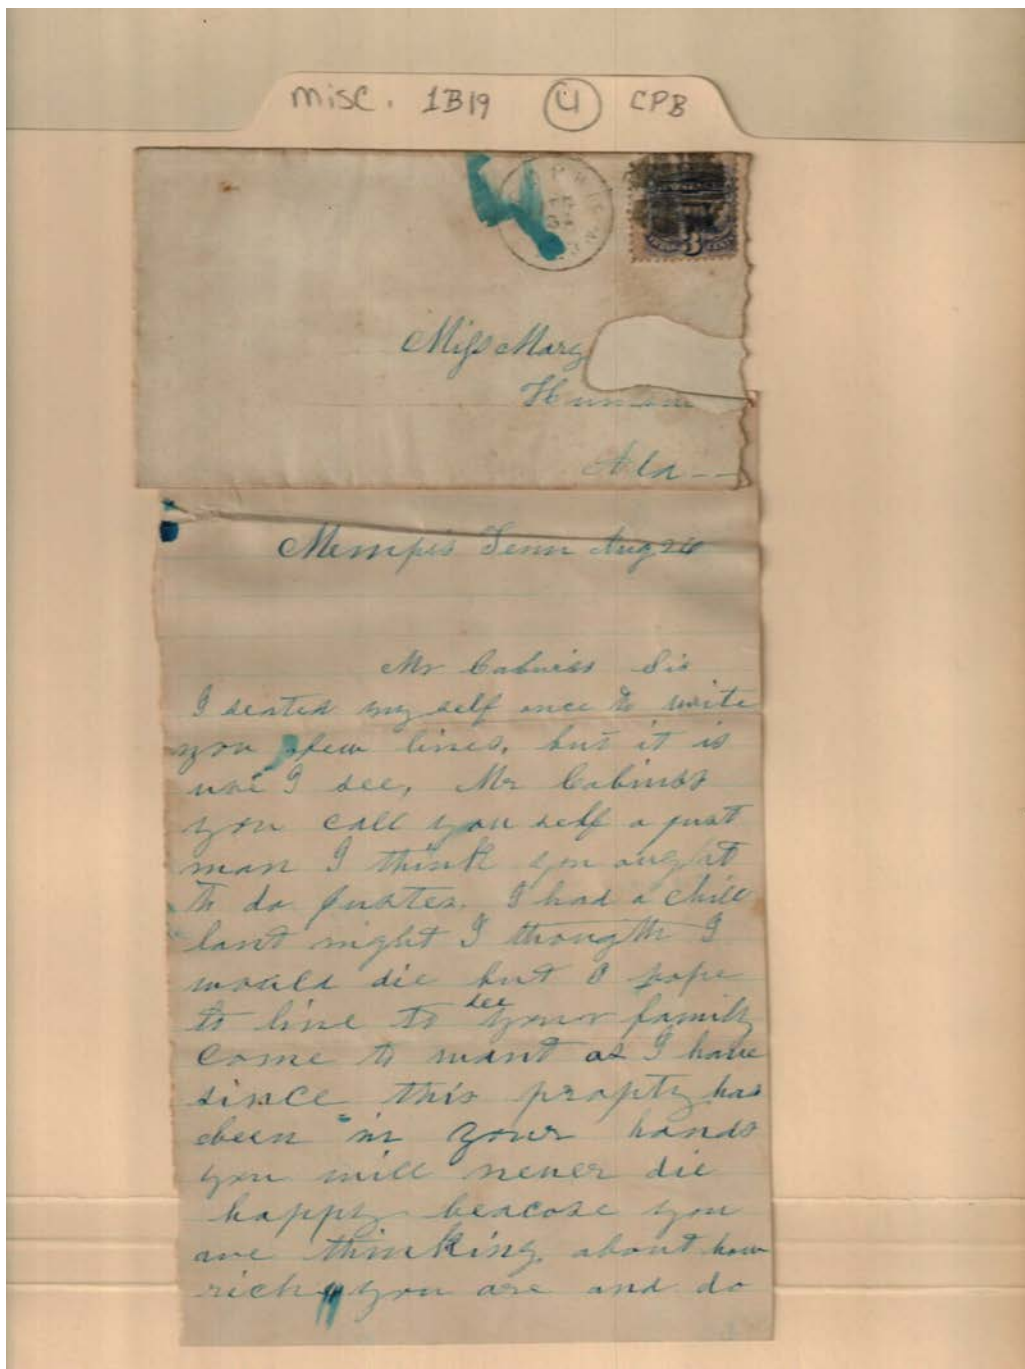 misc. 1B19 4 CPB
3
Miss Marg
Ala
Mempis Tenn Aug 26
Mr Cabniss Sir
I seated my self once to write
you few lines, but it is
use I see, Mr Cabinss
you call you self a just
man I think you aught
to do justes. I had a chill
last night I thougth I
would die but I hope
to live to see your family
come to want as I have
since this propty has
been in your hands
you will never die
happy beacose you
are thinking about how
rich you are and do